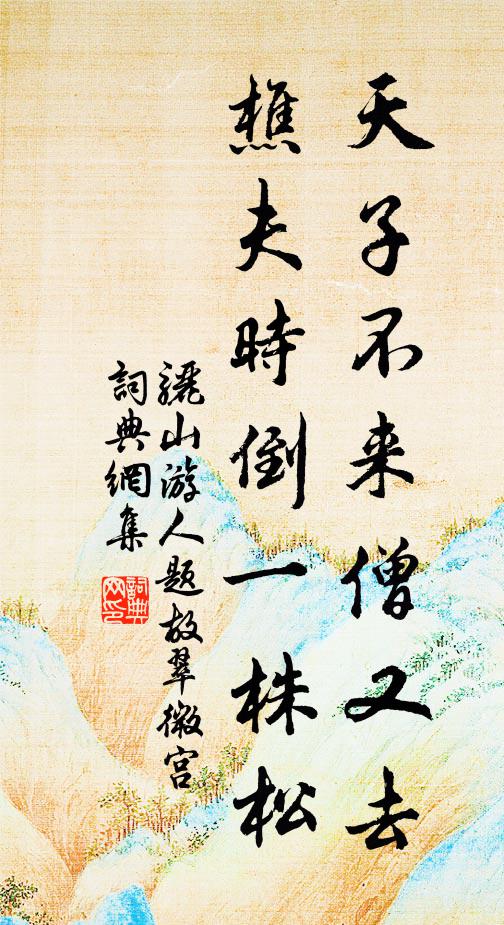 天子不来僧又去
樵夫時倒一株松
骊山游人题故翠微宫
詞典網集
詞典